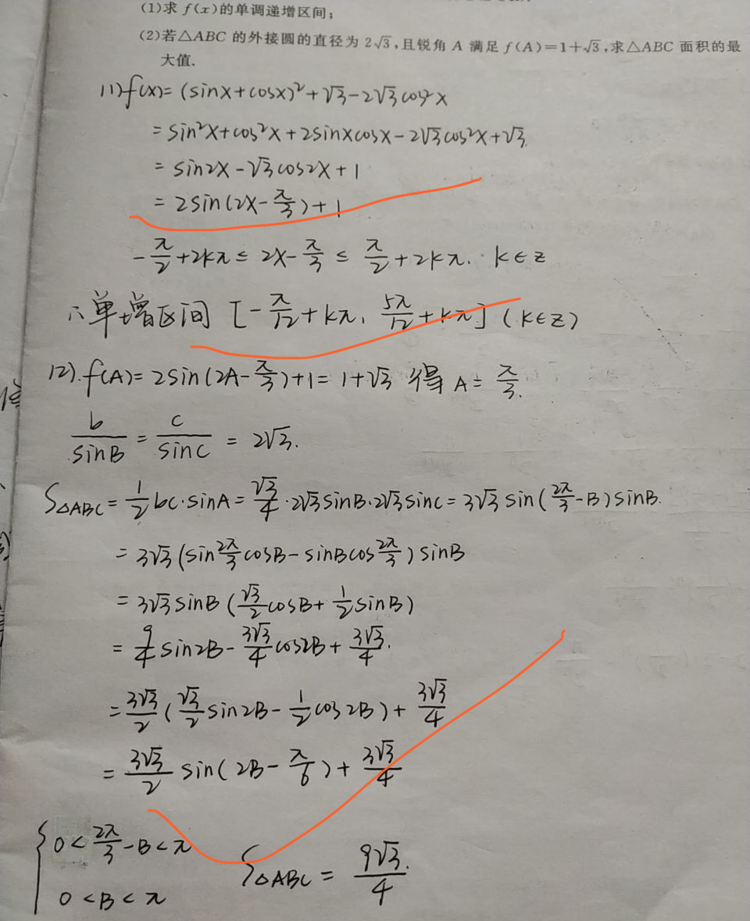 (1)求 f(x)的单调递增区间;
(2)若△ABC 的外接圆的直径为 2√3,且锐角 A 满足 f(A)=1+√3,求△ABC 面积的最
大值.
(1)f(x)=(sinx+cosx)²+√3-2√3cos²x
=sin²x+cos²x+2sinxcosx-2√3cos²x+√3.
=sin2x-√3cos2x+1
=2sin(2x-π/3)+1
-π/2+2kπ≤2x-π/3≤π/2+2kπ. k∈z
∴单增区间 [-π/12+kπ, 5π/12+kπ] (k∈z)
(2).f(A)=2sin(2A-π/3)+1=1+√3 得 A=π/3.
b/sinB=c/sinC=2√3.
S△ABC=1/2bc·sinA=√3/4·2√3sinB·2√3sinC=3√3sin(2π/3-B)sinB.
=3√3(sin2π/3cosB-sinBcos2π/3)sinB
=3√3sinB(√3/2cosB+1/2sinB)
=9/4sin2B-3√3/4cos2B+3√3/4.
=3√3/2(√3/2sin2B-1/2cos2B)+3√3/4
=3√3/2sin(2B-π/6)+3√3/4
{0<2π/3-B<π
0<B<π
S△ABC=9√3/4.